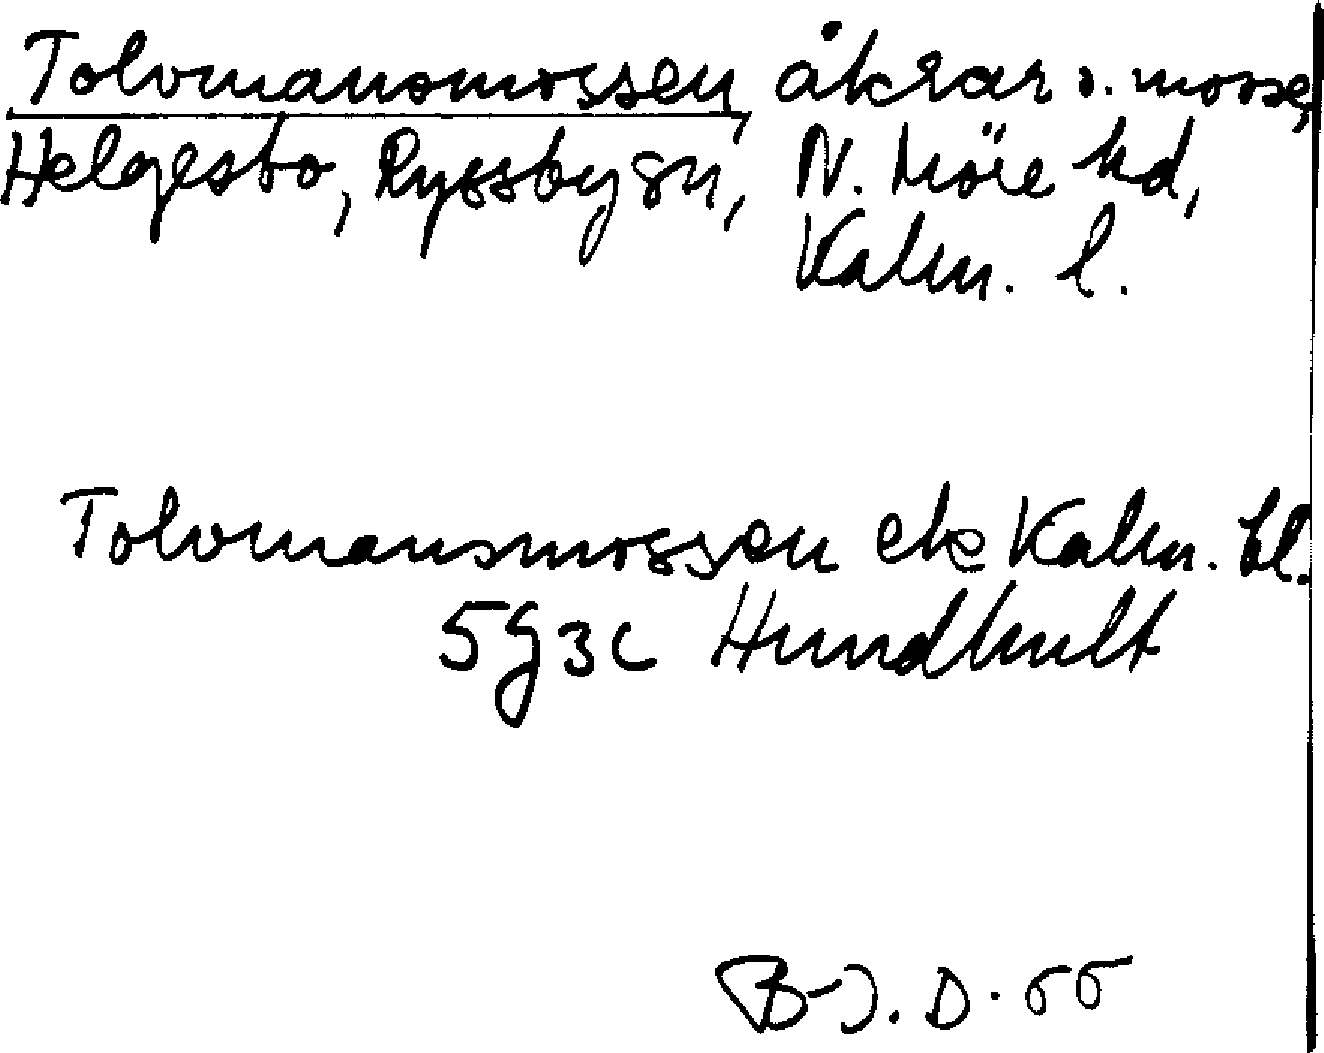 Tolvmansmossen, åkrar o. mosse,
Helgesbo, Ryssby sn, N. Möre hd,
Kalm. l.
Tolvmansmossen ek Kalm. bl.
5g3c Hundhult
B-J. D. 55